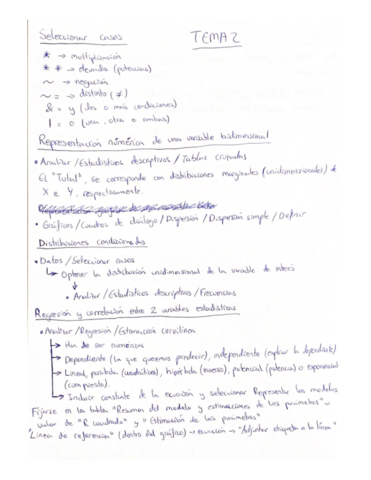 Seleccionar casos TEMA 2
* → multiplicación
* * → elevado (potencias)
~ → negación
~ = → distinto (≠)
& = y (dos o más condiciones)
| = o (una, otra o ambas)
Representación númerica de una variable bidimensional
• Analizar / Estadísticos descriptivos / Tablas cruzadas
El "Total", se corresponde con distribuciones marginales (unidimensionales) de
X e Y, respectivamente.
• Gráficos / Cuadros de diálogo / Dispersión / Dispersión simple / Definir
Distribuciones condicionadas
• Datos / Seleccionar casos
↳ Obtener la distribución unidimensional de la variable de interés
↓
• Analizar / Estadísticos descriptivos / Frecuencias
Regresión y correlación entre 2 variables estadísticas
• Analizar / Regresión / Estimación curvilínea
→ Han de ser numéricas
→ Dependiente (la que queremos predecir), independiente (explicar la dependiente)
→ Lineal, parábola (cuadrático), hipérbola (inverso), potencial (potencia) o exponencial
(compuesto).
↳ Incluir constante de la ecuación y seleccionar Representar los modelos
Fijarse en la tabla "Resumen del modelo y estimaciones de los parámetros" →
valor de "R cuadrado" y "Estimación de los parámetros"
"Línea de referencia" (dentro del gráfico) → ecuación → "Adjuntar etiqueta a la línea"